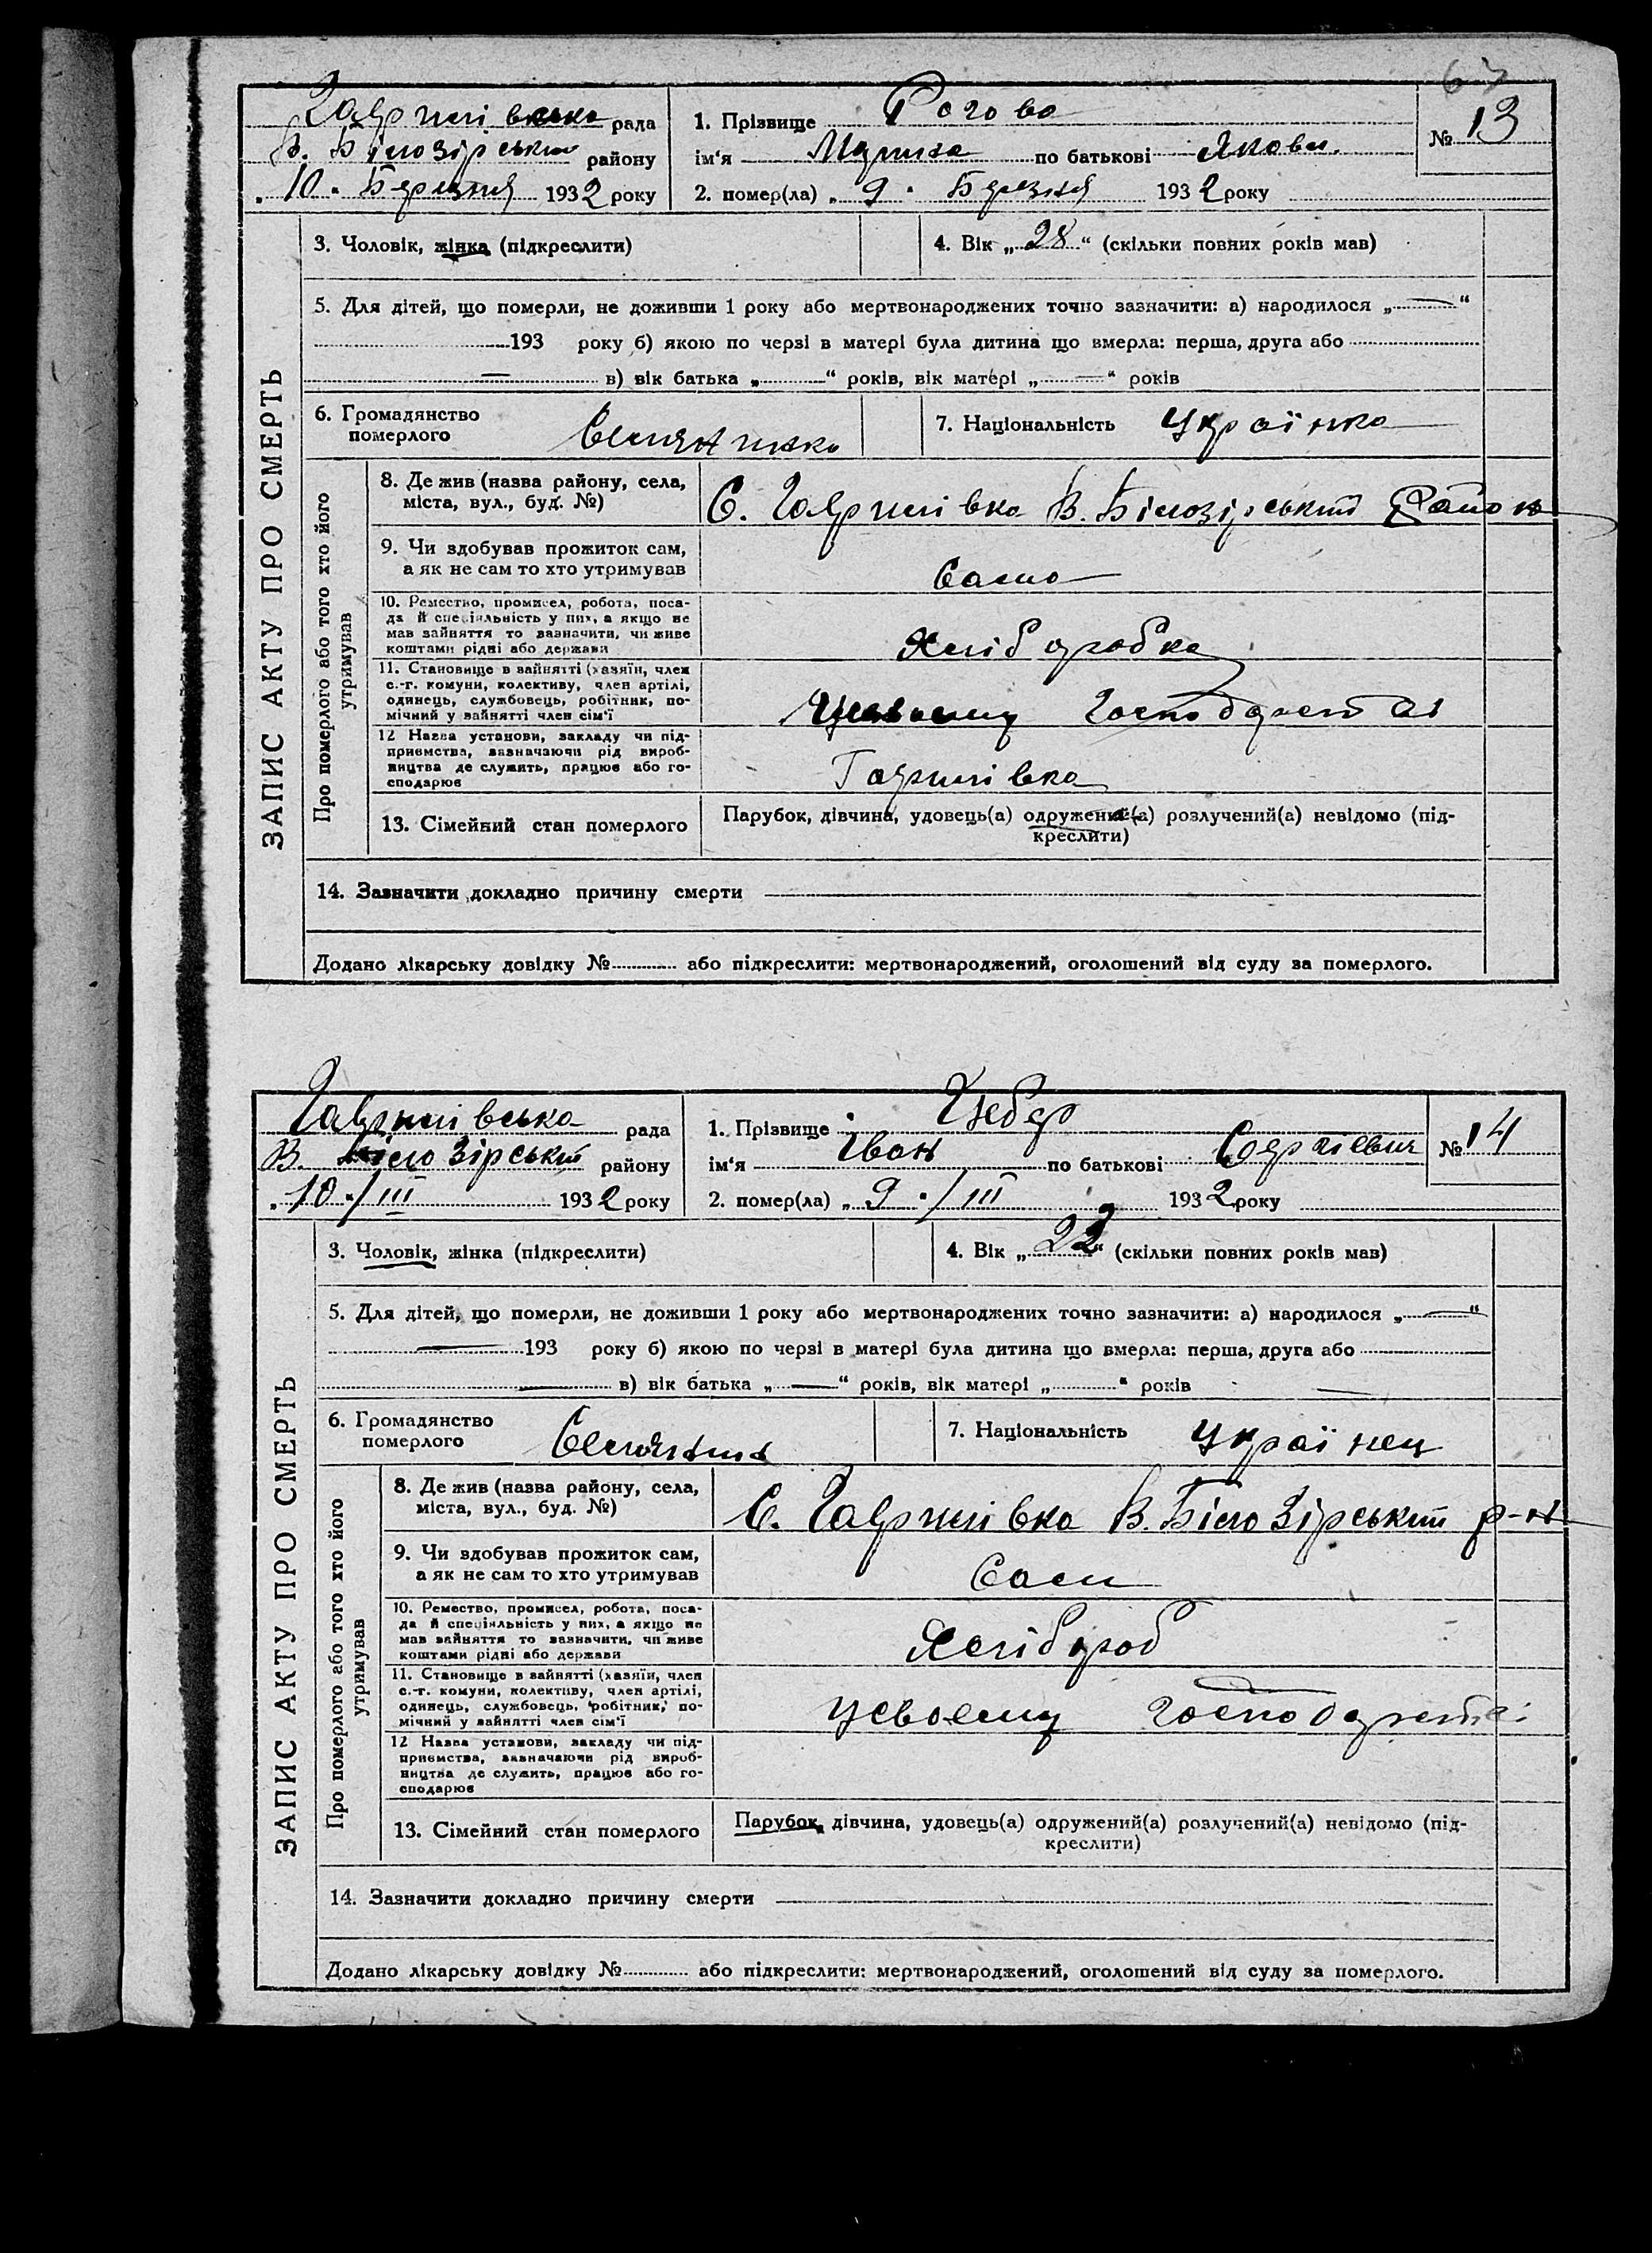 63
Гаврилівська рада
В. Білозірський районy
„ 10 " Березня 1932 року
1. Прізвище Рогова
ім'я Марина по батькові Якови.
2. помер(ла) „ 9 " Березня 1932 року
№ 13
ЗАПИС АКТУ ПРО СМЕРТЬ
3. Чоловік, жінка (підкреслити)
4. Вік „ 28 “ (скільки повних років мав)
5. Для дітей, що померли, не доживши 1 року або мертвонароджених точно зазначити: а) народилося „ — “
193 року б) якою по черзі в матері була дитина що вмерла: перша, друга або
— в) вік батька „ “ років, вік матері „ — “ років
6. Громадянство померлого Селянинка
7. Національність Українка
Про померлого або того хто його утримував
8. Де жив (назва району, села,
міста, вул., буд. №)
С. Гаврилівка В. Білозірський Район
9. Чи здобував прожиток сам,
а як не сам то хто утримував
Сама
10. Ремество, промисел, робота, поса-
да й спеціяльність у них, а якщо не
мав зайняття то зазначити, чи живе
коштами рідні або держави
Хліборобка
11. Становище в зайнятті (хазяїн, член
с.-г. комуни, колективу, член артілі,
одинець, службовець, робітник, по-
мічний у зайнятті член сім'ї
Усвоему Господарстві
12 Назва установи, закладу чи під-
приємства, зазначаючи рід вироб-
ництва де служить, працює або го-
сподарює
Гаврилівка
13. Сімейний стан померлого
Парубок, дівчина, удовець(а) одружений(а) розлучений(а) невідомо (під-
креслити)
14. Зазначити докладно причину смерти
Додано лікарську довідку № або підкреслити: мертвонароджений, оголошений від суду за померлого.
Гаврилівська рада
В. Білозірський району
„ 10 "/III 1932 року
1. Прізвище Цебер
ім'я Іван по батькові Сергієвич
2. помер(ла) „ 9 "/III 1932 року
№ 14
ЗАПИС АКТУ ПРО СМЕРТЬ
3. Чоловік, жінка (підкреслити)
4. Вік „ 22 “ (скільки повних років мав)
5. Для дітей, що померли, не доживши 1 року або мертвонароджених точно зазначити: а) народилося „ — “
— 193 року б) якою по черзі в матері була дитина що вмерла: перша, друга або
— в) вік батька „ — “ років, вік матері „ “ років —
6. Громадянство померлого Селянин
7. Національність Українец
Про померлого або того хто його утримував
8. Де жив (назва району, села,
міста, вул., буд. №)
С. Гаврилівка В. Білозірський р-н
9. Чи здобував прожиток сам,
а як не сам то хто утримував
Сам
10. Ремество, промисел, робота, поса-
да й спеціяльність у них, а якщо не
мав зайняття то зазначити, чи живе
коштами рідні або держави
Хлібороб
11. Становище в зайнятті (хазяїн, член
с.-г. комуни, колективу, член артілі,
одинець, службовець, робітник, по-
мічний у зайнятті член сім'ї
Усвоему Господарстві
12 Назва установи, закладу чи під-
приємства, зазначаючи рід вироб-
ництва де служить, працює або го-
сподарює
13. Сімейний стан померлого
Парубок, дівчина, удовець(а) одружений(а) розлучений(а) невідомо (під-
креслити)
14. Зазначити докладно причину смерти
Додано лікарську довідку № або підкреслити: мертвонароджений, оголошений від суду за померлого.